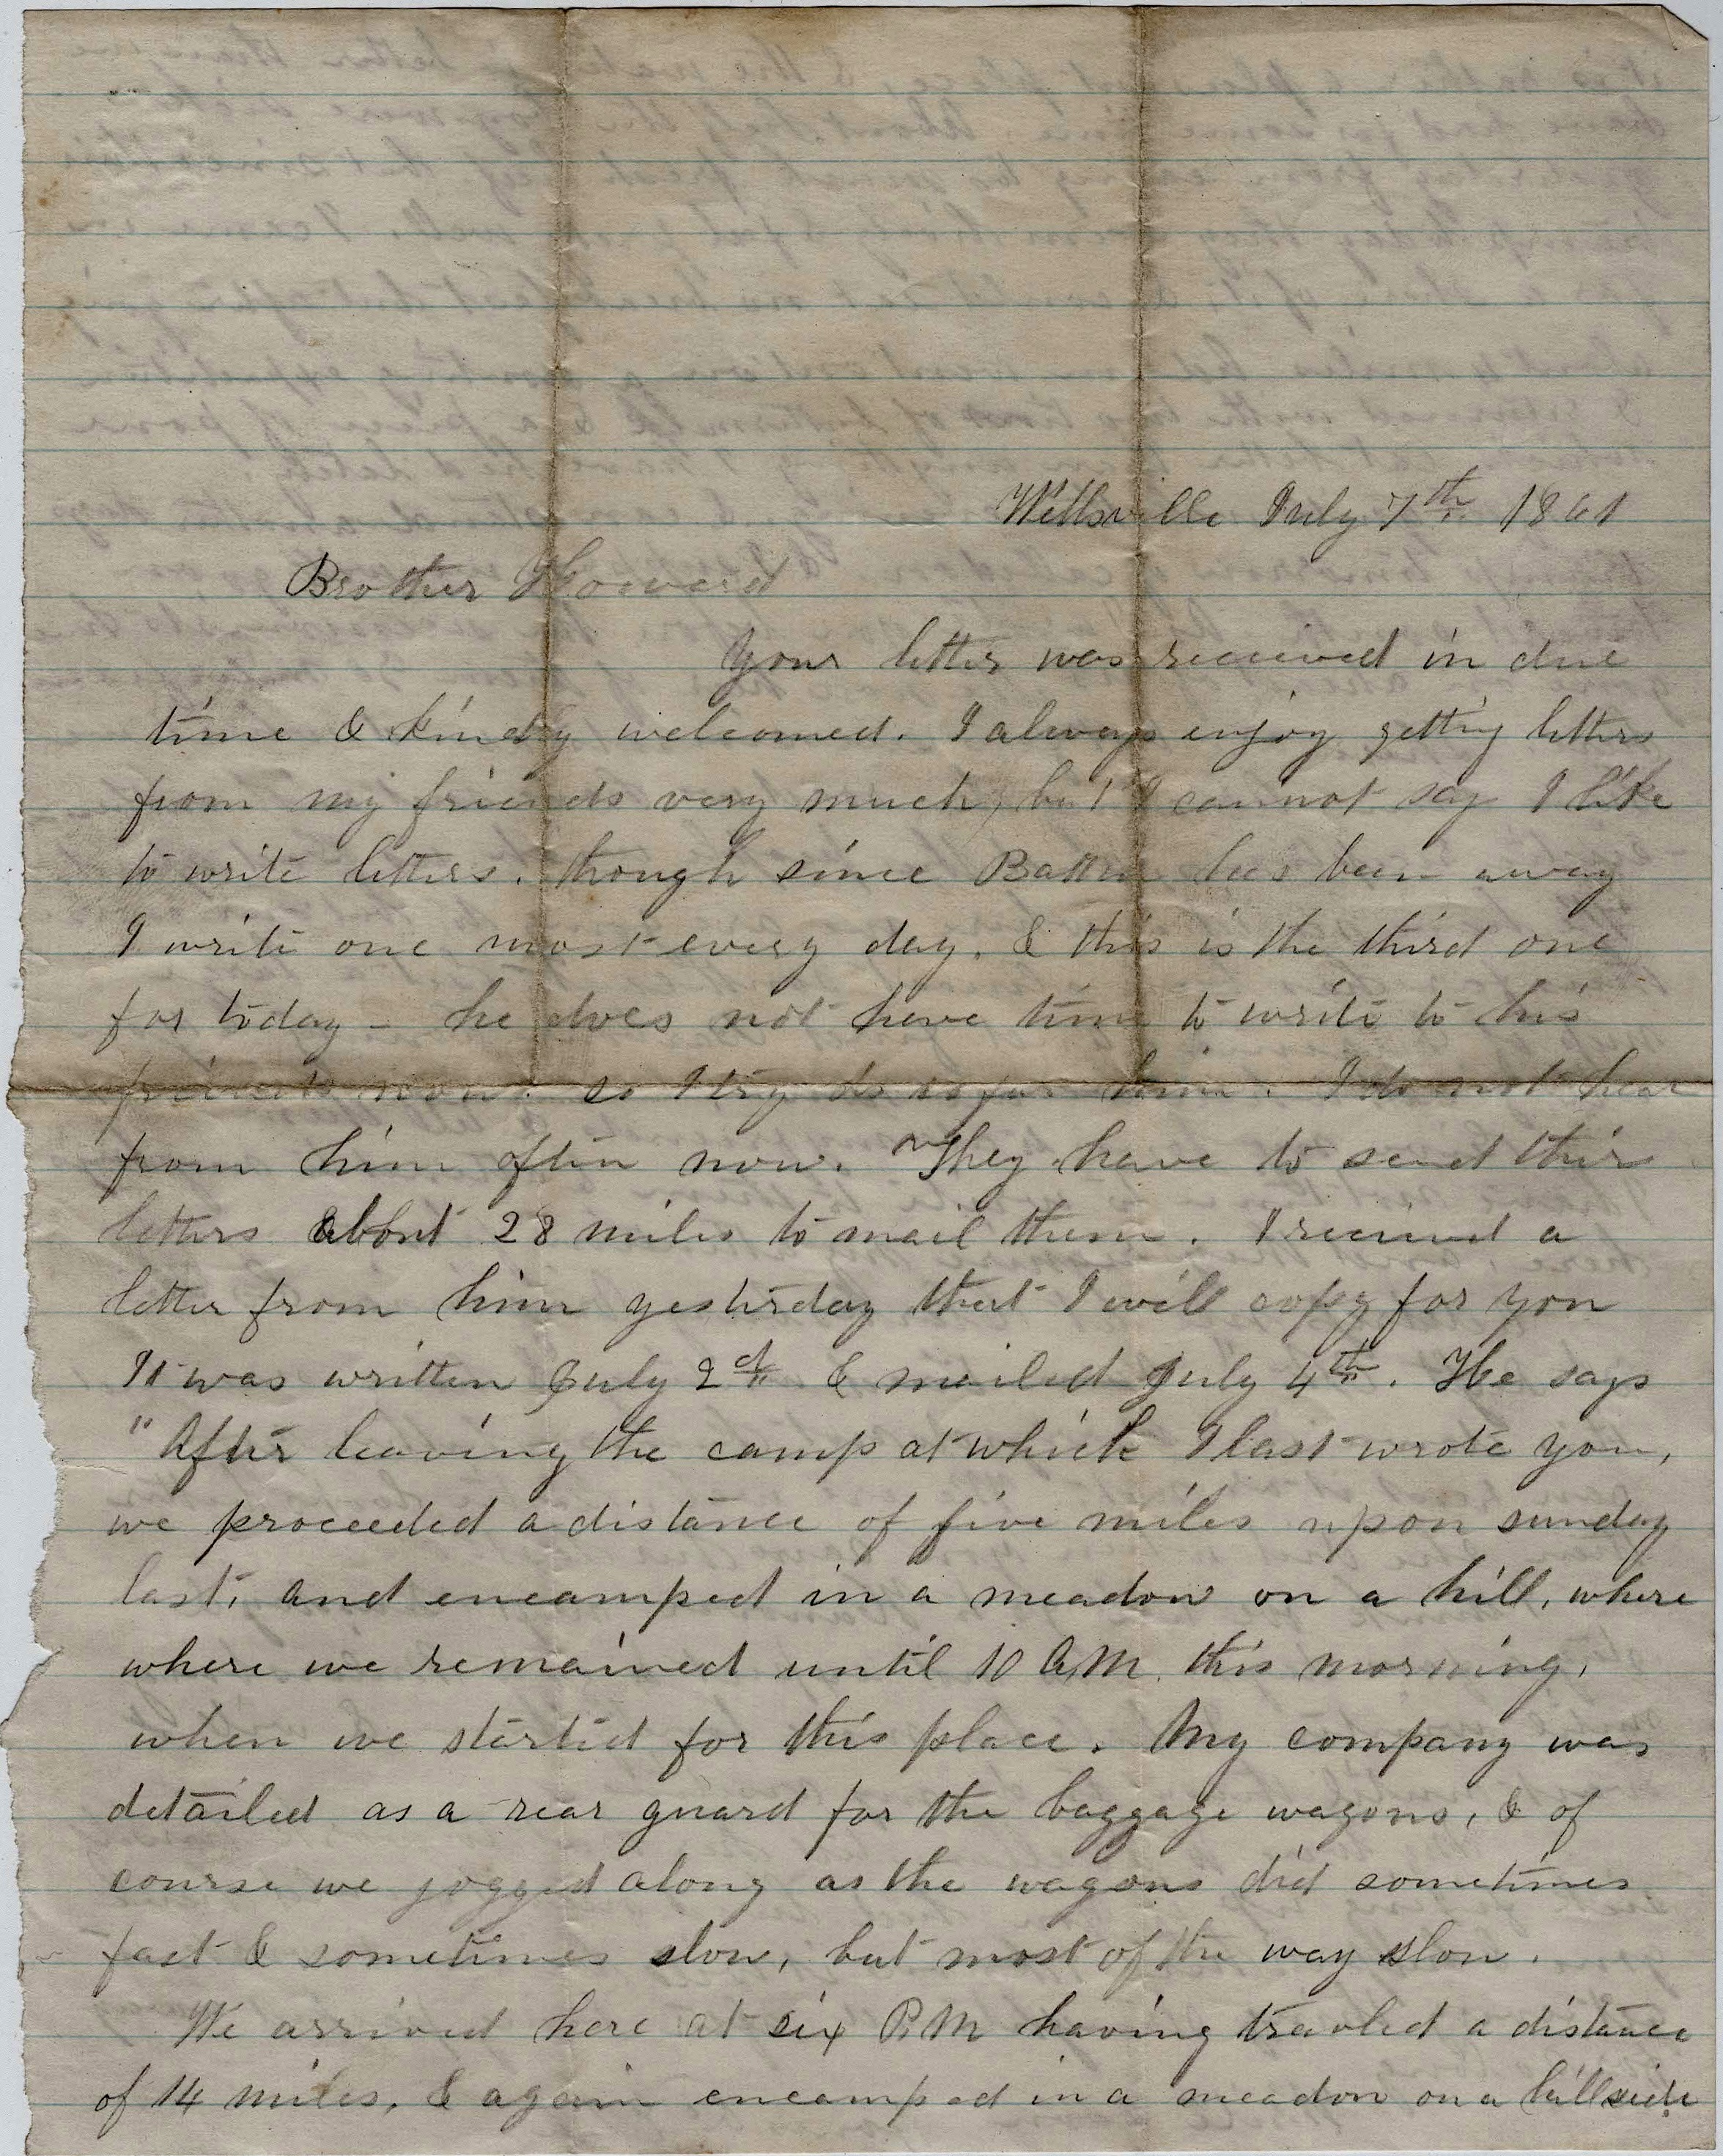 Wellsville July 7th 1861
Brother Howard
Your letter was received in due
time & kindly welcomed. I always enjoy getting letters
from my friends very much, but I cannot say I like
to write letters. though since has been away
I write one most every day. & this is the third one
for today – he does not have time to write to his
friends now. so I try do so for him. I do not hear
from him often now. They have to send their
letters about 28 miles to mail them. I received a
letter from him yesterday that I will copy for you
It was written July 2d & mailed July 4th. He says
"After leaving the camp at which I last wrote you,
we proceeded a distance of five miles upon sunday
last, and encamped in a meadow on a hill, where
where we remained until 10 A.M. this morning,
when we started for this place. My company was
detailed as a rear guard for the baggage wagons, & of
course we jogged along as the wagons did sometimes
fast & sometimes slow, but most of the way slow.
We arrived here at six P.M having travled a distance
of 14 miles, & again encamped in a meadow on a hillside